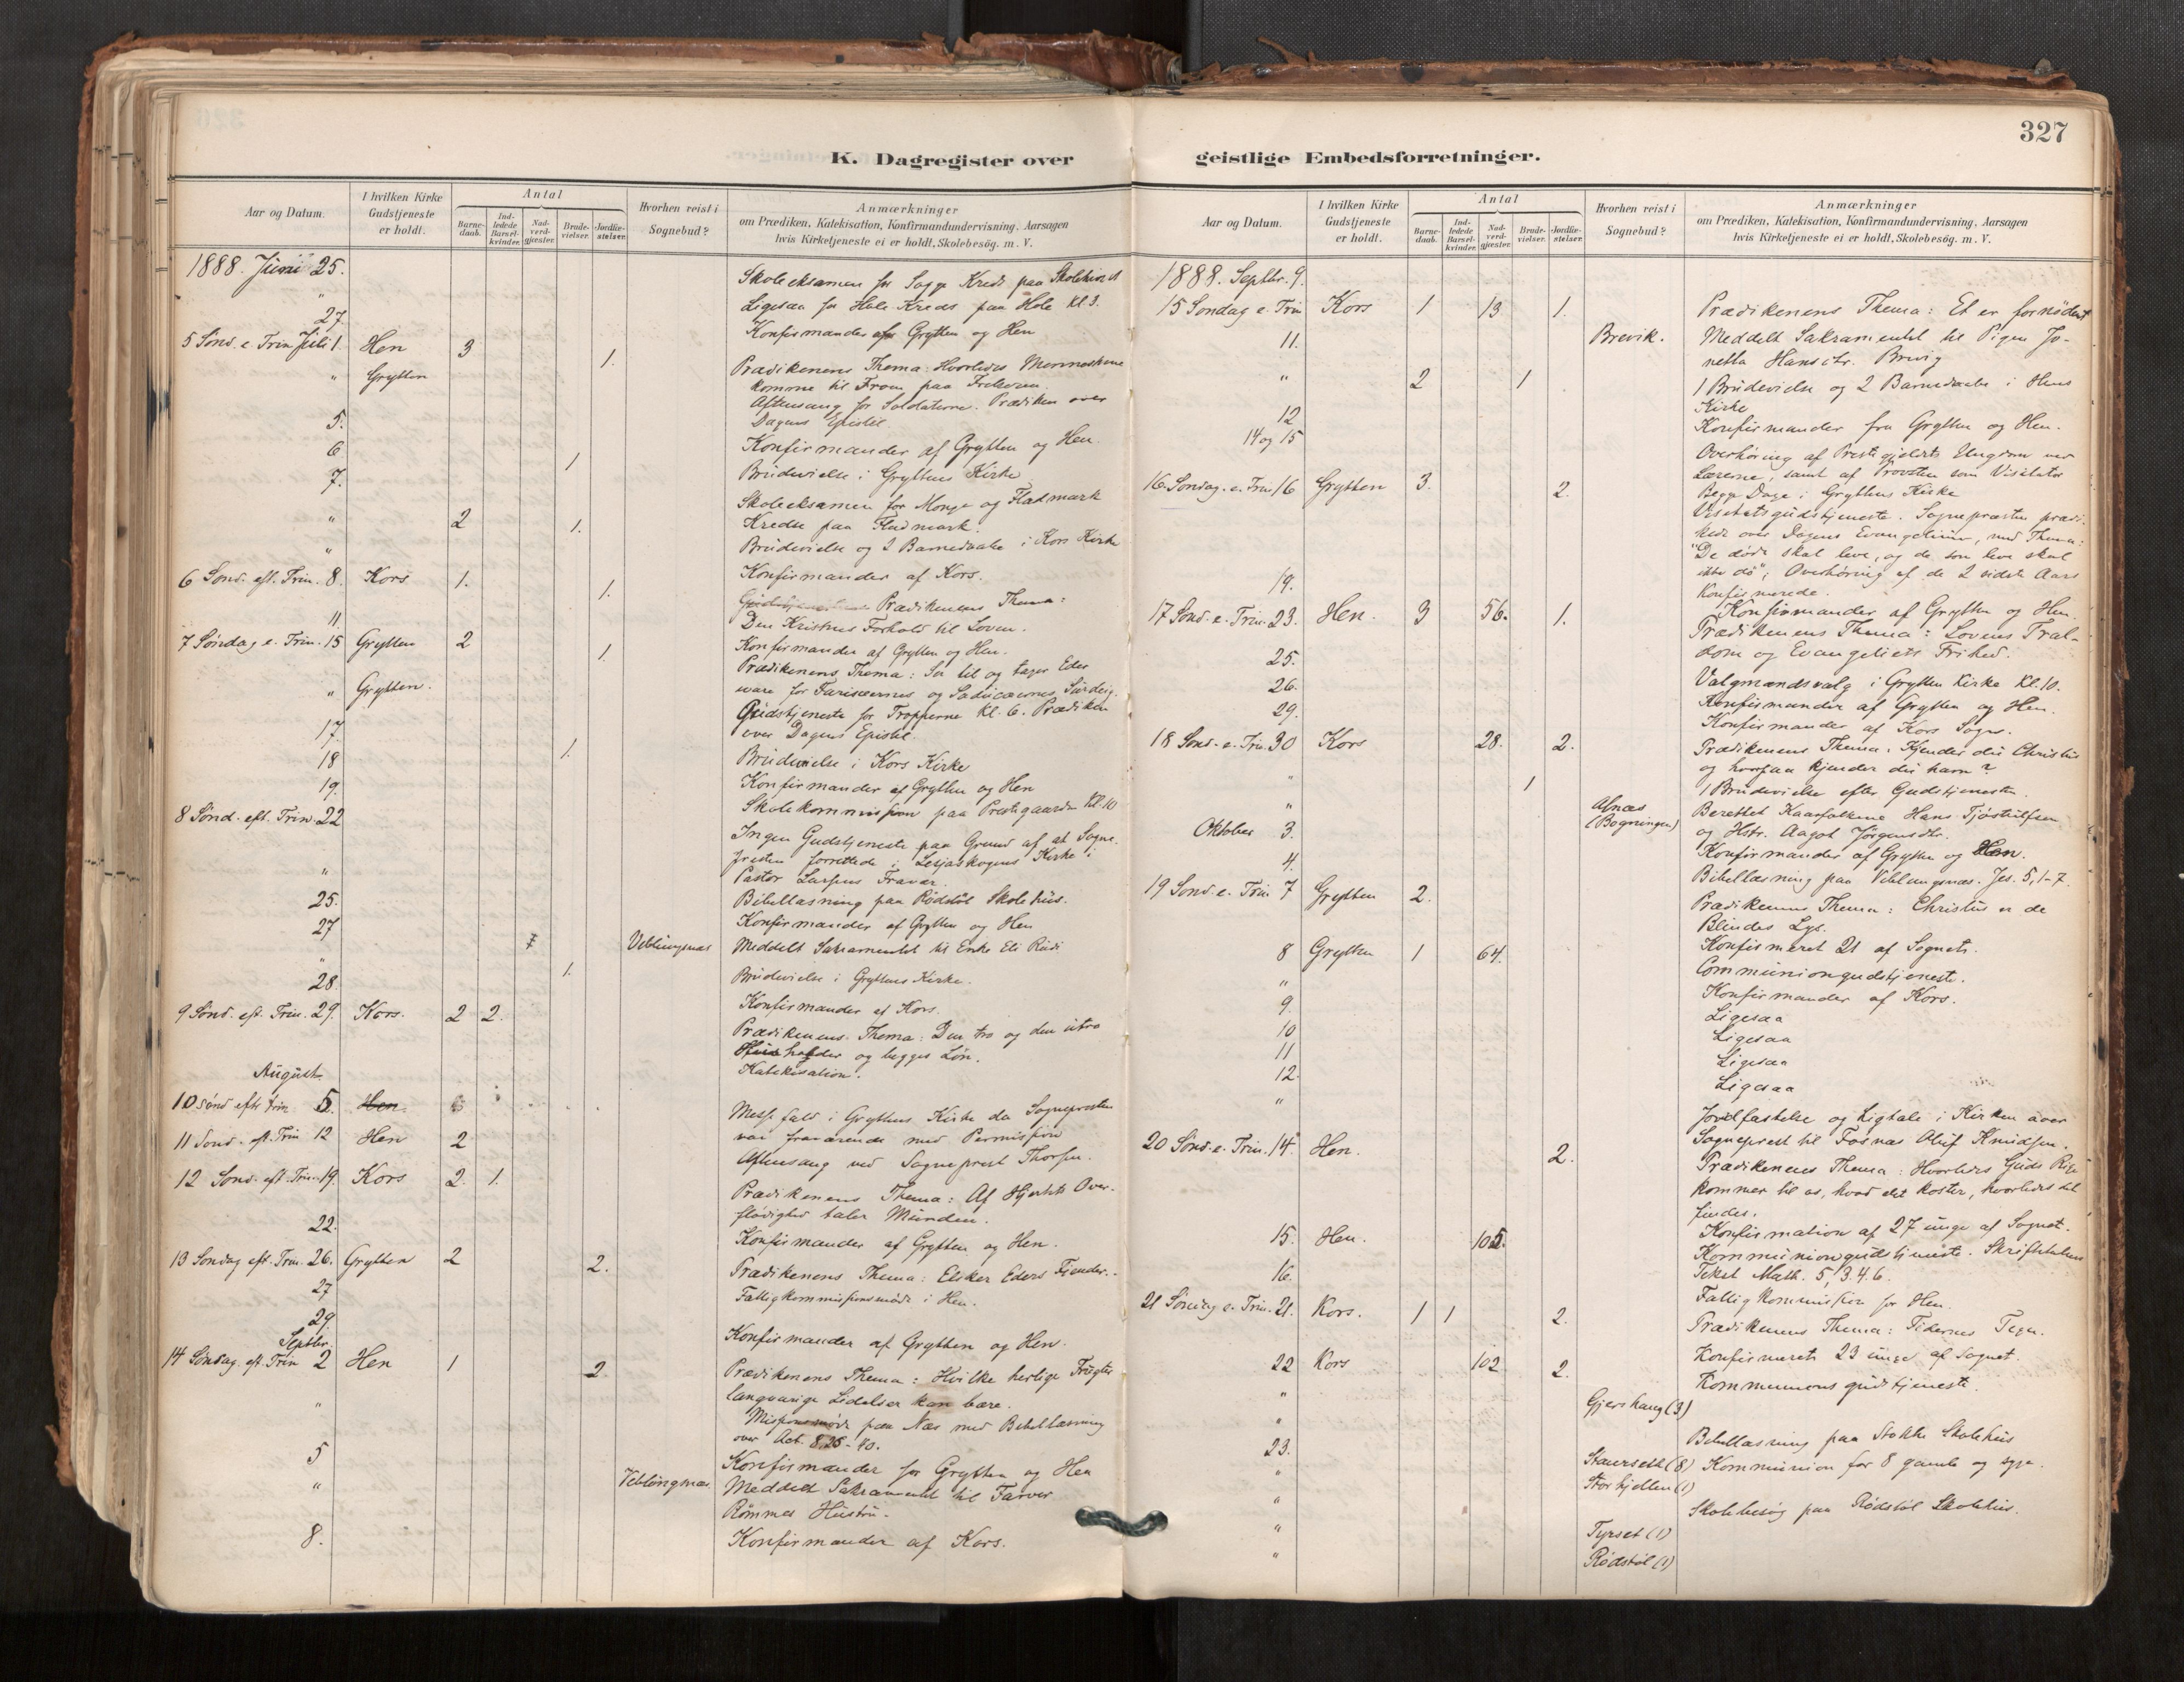 327
K. Dagregister over geistlige Embedsforretninger.
Aar og Datum.
I hvilken Kirke Gudstjeneste er holdt.
Antal
Barnedaab.
Indledede Barselkvinder.
Nadverdgjester.
Brudevielser.
Jordfæstelser.
Hvorhen reist i Sognebud?
Anmærkninger
om Prædiken, Katekisation, Konfirmandundervisning, Aarsagen
hvis Kirketjeneste ei er holdt, Skolebesög. m. V.
1888. Juni 25. Skoleeksamen for Sogge Kreds paa Skolehuset
27. Ligesaa for Hole Kreds paa Hole Kl 3.
Konfirmander af Grytten og Hen
5 Sönd. e. Trin Juli 1. Hen 3 1. Prædikenens Thema: Hvorledes Menneskene
komme til Troen paa Frelseren.
" Grytten Aftensang for Soldaterne. Prædiken over
Dagens Epistel
5. Konfirmander af Grytten og Hen.
6 1 Brudevielse i Gryttens Kirke
7. Skoleeksamen for Monge og Fladmark
Kredse paa Fladmark.
" 2 1. Brudevielse og 2 Barnedaabe i Kors Kirke
" Konfirmander af Kors.
6 Sönd. eft. Trin. 8. Kors 1. 1. Prædikenens Thema:
Den Kristnes Forhold til Loven.
11. Konfirmander af Grytten og Hen.
7 Söndag e. Trin. 15 Grytten 2 1. Prædikenens Thema: Ser til og tager Eder
vare for Farisæernes og Saducæernes Surdeig.
" Grytten. Gudstjeneste for Tropperne Kl. 6. Prædiken
over Dagens Epistel.
17. 1. Brudevielse i Kors Kirke
18 Konfirmander af Grytten og Hen
19. Skolekommission paa Prestegaarden Kl. 10
8 Sönd. eft. Trin. 22 Ingen Gudstjeneste paa Grund af at Sogne-
presten forrettede i Lesjaskogens Kirke i
Pastor Fravær.
" Bibellæsning paa Rödstöl Skolehus.
25. Konfirmander af Grytten og Hen
27 Veblungsnæs Meddelt Sakramentet til Enke Eli Rödi
" 1. Brudevielse i Gryttens Kirke.
28. Konfirmander af Kors.
9 Sönd. eft. Trin. 29. Kors. 2 2. Prædikenens Thema: Den tro og den utro
Husholder og begges Lön.
Katekisation.
August
10 sönd eftr Trin 5. Hen. Messefald i Gryttens Kirke da Sognepresten
var fraværende med Permission
11 Sönd. eft. Trin 12 Hen 2 Aftensang ved Sogneprest Thorsen.
12 Sönd. eft. Trin. 19. Kors 2. 1. Prædikenens Thema: Af Hjertets Over-
flödighed taler Munden.
22. Konfirmander af Grytten og Hen.
13 Söndag eft. Trin. 26. Grytten 2 2. Prædikenens Thema: Elsker Eders Fiender.
27 Fattigkommissionsmöde i Hen.
29. Konfirmander af Grytten og Hen.
Septbr.
14 Söndag. eft. Trin 2 Hen 1 2 Prædikenens Thema: Hvilke herlige Frugter
langvarige Lidelser kan bære.
" Missionsmöde paa Næs med Bibellæsning
over Act. 8, 26-40.
5 Konfirmander for Grytten og Hen
" Veblungsnæs. Meddelt Sakramentet til Farver
Römmes Hustru.
8. Konfirmander af Kors.
Aar og Datum.
I hvilken Kirke Gudstjeneste er holdt.
Antal
Barnedaab.
Indledede Barselkvinder.
Nadverdgjester.
Brudevielser.
Jordfæstelser.
Hvorhen reist i Sognebud?
Anmærkninger
om Prædiken, Katekisation, Konfirmandundervisning, Aarsagen
hvis Kirketjeneste ei er holdt, Skolebesög. m. V.
1888. Septbr. 9.
15 Söndag e. Trin Kors 1 13 1. Prædikenens Thema: Et er fornödent
11. Brevik. Meddelt Sakramentet til Pigen Jo-
netta Hansdtr. Brevig
" 2 1 1 Brudevielse og 2 Barnedaabe i Hens
Kirke
12 Konfirmander fra Grytten og Hen.
14 og 15 Overhöring af Prestegjeldets Ungdom ved
Lærerne, samt af Provsten som Visitator
Begge Dage i Gryttens Kirke
16. Söndag. e. Trin. 16 Grytten 3. 2. Visitatsgudstjeneste. Sognepresten prædi-
kede over Dagens Evangelium, med Thema:
"De döde skal leve, og de som leve skal
ikke dö"; Overhöring af de 2 sidste Aars
Konfirmerede.
19. Konfirmander af Grytten og Hen.
17 Sönd. e. Trin. 23. Hen. 3 56. 1. Prædikenens Thema: Lovens Træl-
dom og Evangeliets Frihed.
25. Valgmandsvalg i Grytten Kirke Kl. 10.
26. Konfirmander af Grytten og Hen.
29. Konfirmander af Kors Sogn.
18 Sönd. e. Trin. 30 Kors 28. 2. Prædikenens Thema. Kjender du Christus
og hvorpaa kjender du ham?
" 1 1 Brudevielse efter Gudstjenesten.
" Afnæs (Bogningen) Berettet Kaarfolkene Hans Tjöstulfsen
og Hstr. Aagot Jörgensdtr.
Oktober 3. Konfirmander af Grytten og Hen.
4. Bibellæsning paa Veblungsnæs. Jes. 5, 1-7.
19 Sönd. e. Trin. 7 Grytten 2. Prædikenens Thema: Christus er de
Blindes Lys.
Konfirmeret 21 af Sognets.
8 Grytten 1 64. Communiongudstjeneste.
" Konfirmander af Kors.
9. Ligesaa
10 Ligesaa
11 Ligesaa
12. Ligesaa
" Jordfæstelse og Ligtale i Kirken over
Sogneprest til Fosnæs Oluf Knudsen.
20 Sönd. e. Trin. 14. Hen. 2. Prædikenens Thema: Hvorledes Guds Rige
kommer til os, hvad det koster, hvorledes det
findes.
Konfirmation af 27 unge af Sognet.
15. Hen. 105. Kommuniongudstjeneste. Skriftetalens
Tekst Math. 5, 3.4.6.
16. Fattigkommission for Hen.
21 Söndag e. Trin. 21. Kors. 1 1 2. Prædikenens Thema: Tidernes Tegn.
Konfirmeret 23 unge af Sognet.
22 Kors 102 2. Kommunionsgudstjeneste.
" Gjershaug (3)
" Bibellæsning paa Stokke Skolehus
23. Staurseth (8) Kommunion for 8 gamle og syge.
" Storhjellen (1)
" Skolebesög paa Rödstöl Skolehus.
" Tyrset (1)
" Rödstöl (1)